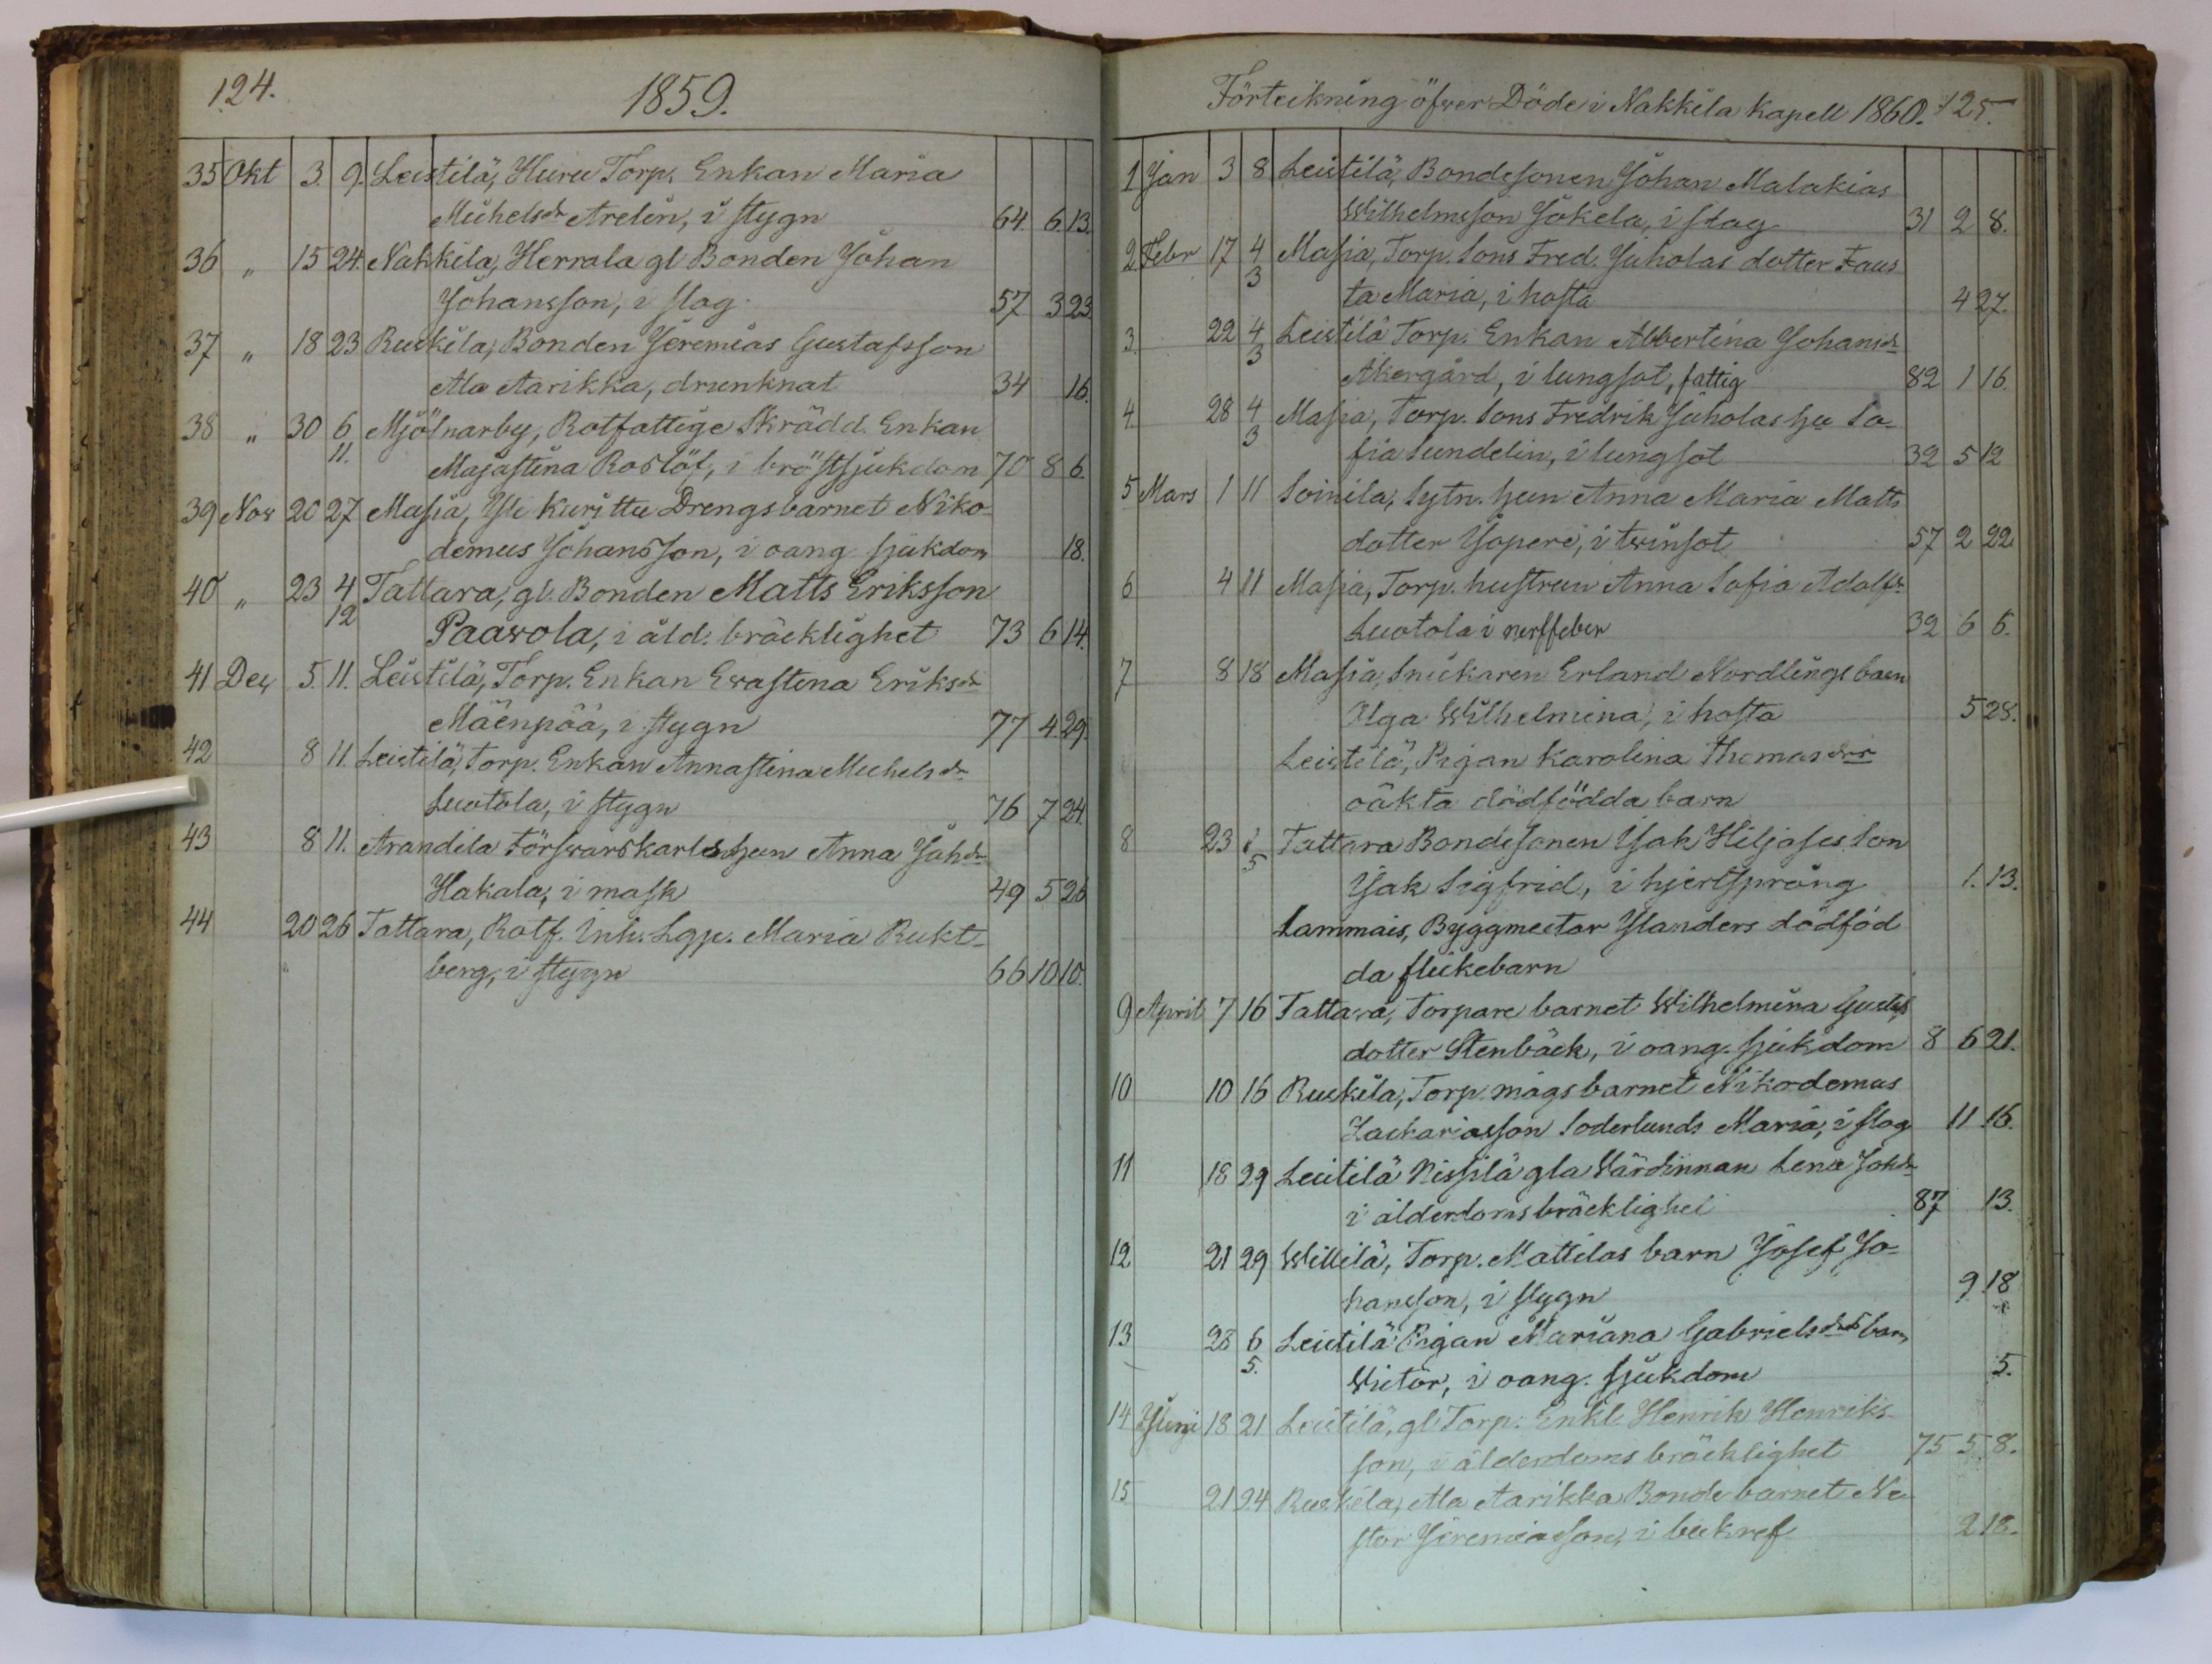 124.
1859.
35 Okt 3. 9. Leistilä, Huru Torp. Enkan Maria
Michelsdr Arelin, i stygn 64. 6. 13.
36 " 15 24. Nakkila, Herrala gl. Bonden Johan
Johansson, i slag. 57 3 23
37 " 18 23 Ruskila, Bonden Jeremias Gustafsson
Ala Aarikka, drunknat 34 16.
38 " 30 6 11. Mjölnarby, Rotfattige Skrädd. Enkan
Majastina Roslöf, i bröstsjukdom 70 8 6.
39 Nov 20 27 Masia, Yli Kurittu Drengsbarnet Niko-
demus Johansson, i oang sjukdom 18.
40 " 23 4 12 Tattara, gl. Bonden Matts Eriksson
Paavola, i åld. bräcklighet 73 6 14.
41 Dec 5. 11. Leistilä, Torp. Enkan Evastina Eriksdr
Mäenpää, i stygn 77 4. 29.
42 8 11. Leistilä, Torp. Enkan Annastina Michelsdr
Luotola, i stygn 76 7 24.
43 8 11. Arandila Försvarskarlshun Anna Johdr
Hakala, i mask 49 5 26
44 20 26 Tattara, Rotf. Inh. Lgp. Maria Rukt-
berg, i stygn 66 10 10.
Förteikning öfver Döde i Nakkila Kapell 1860. 125.
1 Jan 3 8 Leistilä, Bondesonen Johan Malakias
Wilhelmsson Jokela, i slag 31 2 8.
2 Febr 17 4 3 Masia, Torp. Sons Fred. Juholas dotter Faus
ta Maria, i hosta 4 27.
3. 22 4 3 Leistilä Torp. Enkan Albertina Johansdr
Åkergård, i lungsot, fattig 82 1 16.
4 28 4 3 Masia, Torp. Sons Fredrik Juholas hu So-
fia Sundelin, i lungsot 32 5 12
5 Mars 1 11 Soinila, Sytn. hun Anna Maria Matts
dotter Joperi, i tvinsot 57 2 22
6 4 11 Masia, Torp. hustrun Anna Sofia Adolfs
Luotola i nerffeber 32 6 6.
7 8 18 Masia, Snickaren Erland Nordlings barn
Olga Wilhelmina, i hosta 5 28.
Leistilä, Pigan Karolina Thomasdrs
oäkta dödfödda barn
8 23 5 Tattara Bondesonen Isak Hiljases Son
Isak Sigfrid, i hjertsprång 1. 13.
Lammais, Byggmestar Ylanders dödföd
da flickebarn
9 April 7 16 Tattara, Torpare barnet Wilhelmina Gustafs
dotter Stenbäck, i oang. sjukdom 8 6 21.
10 10 16 Ruskila, Torp. mågs barnet Nikodemus
Zachariasson Soderlunds Maria, i slag 11 16.
11 18 29 Leistilä Nissilä gla Värdinnan Lena Johdr
i ålderdomsbräcklighet 87 13.
12 21 29 Willilä, Torp. Mattilas barn Josef Jo-
hansson, i stygn 9 18
13 28 6 5. Leistilä Pigan Mariana Gabrielsdrs barn
Victor, i oang. sjukdom 5.
14 Juni 18 21 Leistilä, gl. Torp. Enkl. Henrik Henriks-
son, i ålderdoms bräcklighet 75 5 8.
15 21 24 Ruskila, Ala Aarikka Bonde barnet Ne-
stor Jeremiasson, i bukref 2 18.